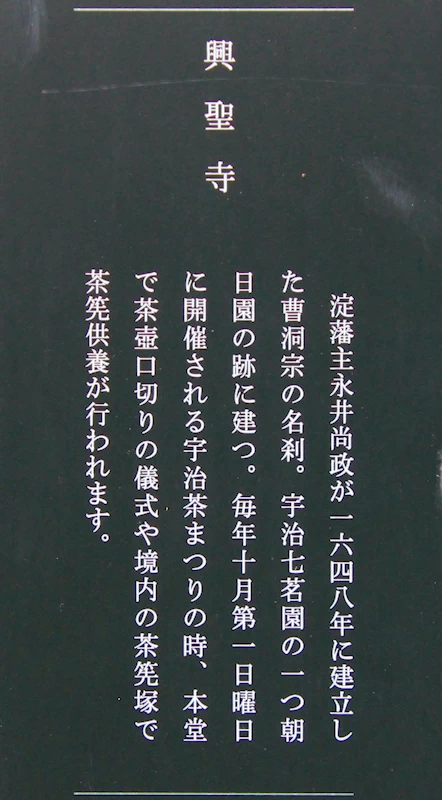 興聖寺
淀藩主永井尚政が一六四八年に建立し
た曹洞宗の名刹。宇治七茗園の一つ朝
日園の跡に建つ。毎年十月第一日曜日
に開催される宇治茶まつりの時、本堂
で茶壺口切りの儀式や境内の茶筅塚で
茶筅供養が行われます。